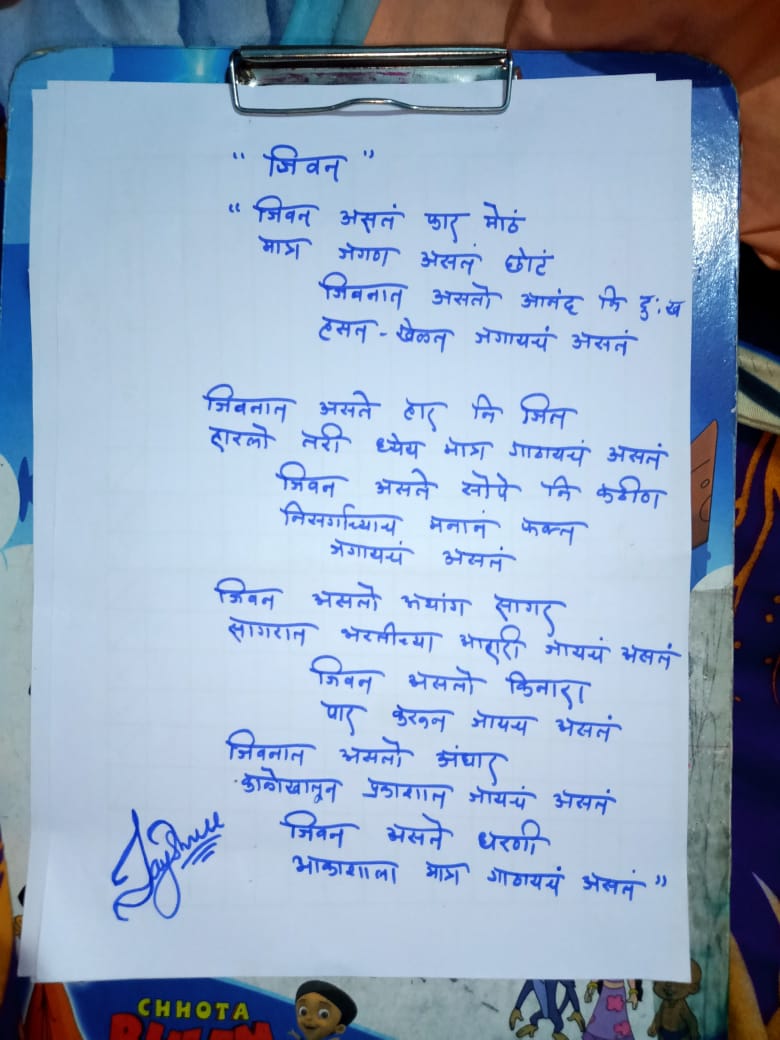 " जिवन "
" जिवन असतं फार मोठं
मात्र जगणं असतं छोटं
जिवनात असतो आनंद नि दु:ख
हसत - खेळत जगायचं असतं
जिवनात असते हार नि जित
हारलो तरी ध्येय मात्र गाठायचं असतं
जिवन असते सोपे नि कठीण
निसर्गाच्याच मनानं फक्त
जगायचं असतं
जिवन असतो अथांग सागर
सागरात भरतीच्या आहारी जायचं असतं
जिवन असतो किनारा
पार करून जायच असतं
जिवनात असतो अंधार
काळोखातून प्रकाशात जायचं असतं
जिवन असते धरणी
आकाशाला मात्र गाठायचं असतं "
Jayshree
CHHOTA
BHEEM